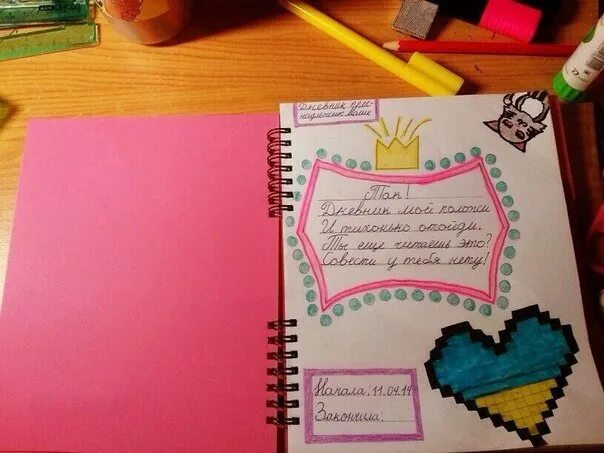 Дневник при-
надлежит: Маше
Так!
Дневник мой положи
И тихонько отойди.
Ты еще читаешь это?
Совести у тебя нету!
Начала: 11.04.14
Закончила: